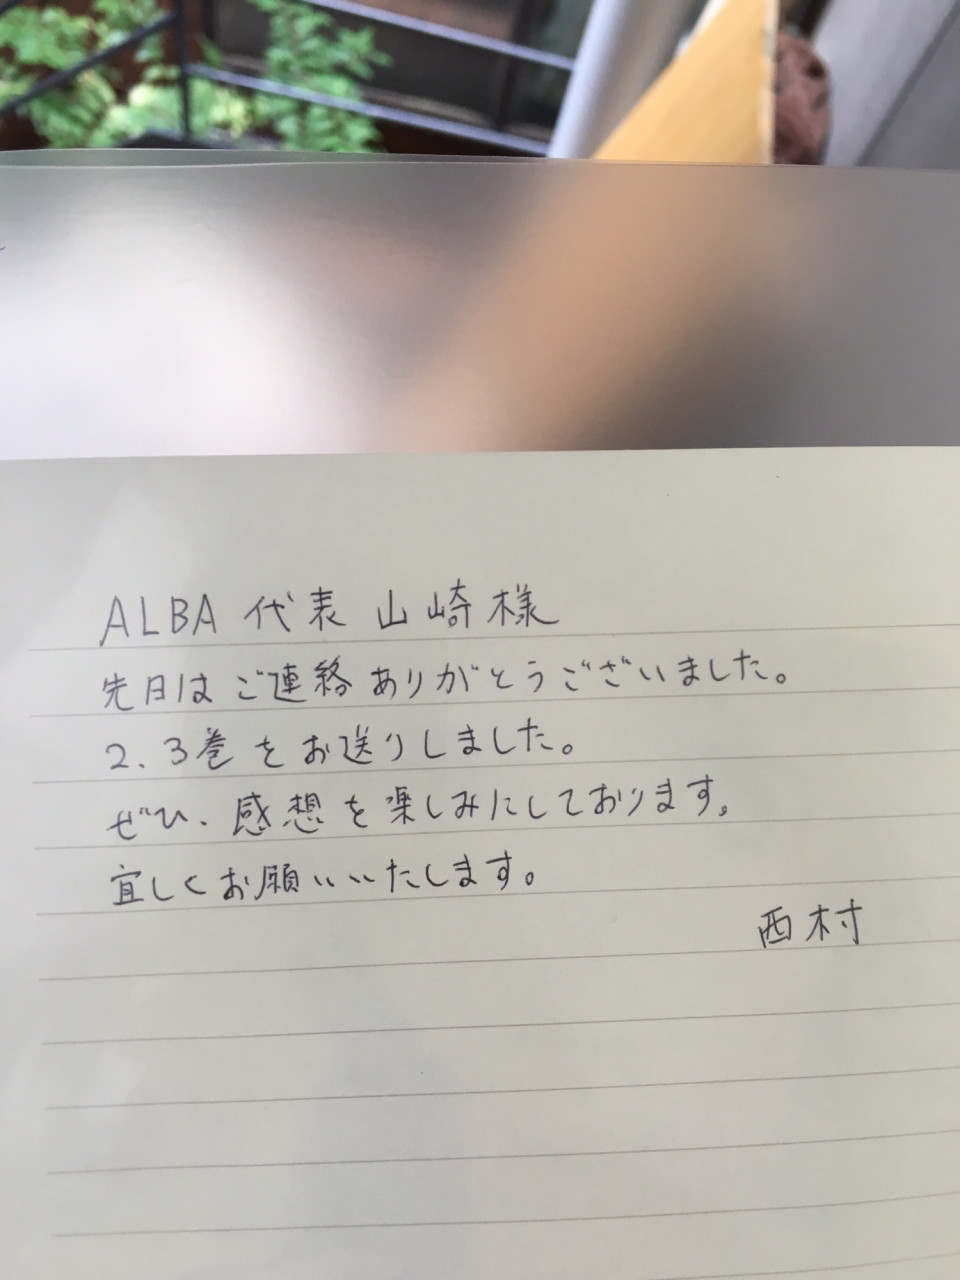 ALBA 代表 山崎様
先日は ご連絡ありがとうございました。
2、3巻をお送りしました。
ぜひ、感想を楽しみにしております。
宜しくお願いいたします。
西村